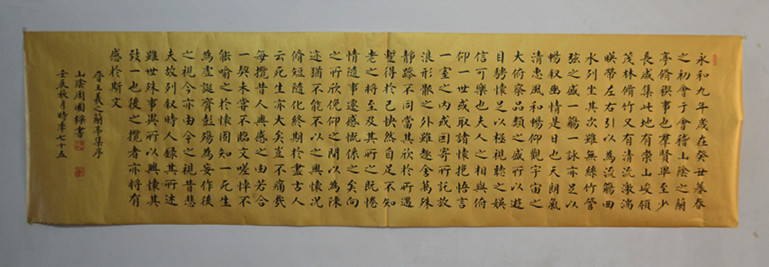 永和九年歲在癸丑暮春
之初會于會稽山陰之蘭
亭脩禊事也羣賢畢至少
長咸集此地有崇山峻領
茂林脩竹又有清流激湍
映帶左右引以為流觴曲
水列坐其次雖無絲竹管
弦之盛一觴一詠亦足以
暢叙幽情是日也天朗氣
清惠風和暢仰觀宇宙之
大俯察品類之盛所以遊
目騁懷足以極視聽之娛
信可樂也夫人之相與俯
仰一世或取諸懷抱悟言
一室之内或因寄所託放
浪形骸之外雖趣舍萬殊
靜躁不同當其欣於所遇
暫得於己怏然自足不知
老之將至及其所之既惓
情隨事遷感慨係之矣向
之所欣俛仰之間以為陳
迹猶不能不以之興懷况
脩短隨化終期於盡古人
云死生亦大矣豈不痛哉
每攬昔人興感之由若合
一契未嘗不臨文嗟悼不
能喻之於懷固知一死生
為虛誕齊彭殤為妄作後
之視今亦由今之視昔悲
夫故列叙時人錄其所述
雖世殊事異所以興懷其
致一也後之攬者亦將有
感於斯文
晉王羲之蘭亭集序
山陰周國書
壬辰秋月時年七十五